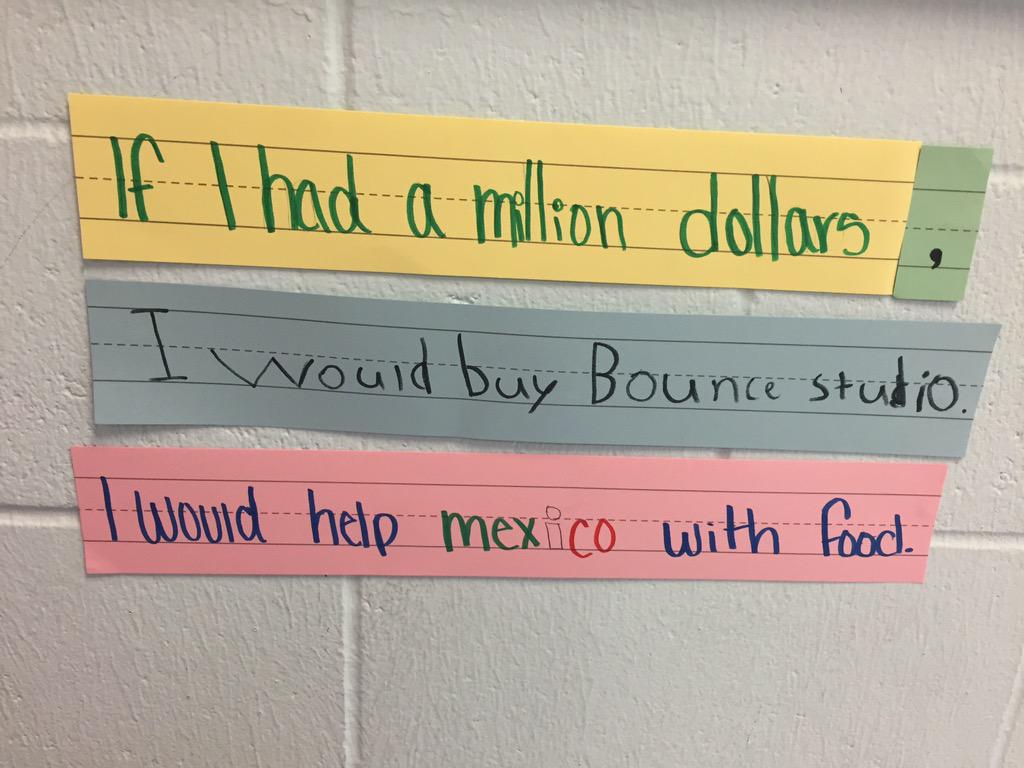 If I had a million dollars,
I would buy Bounce studio.
I would help mexico with food.